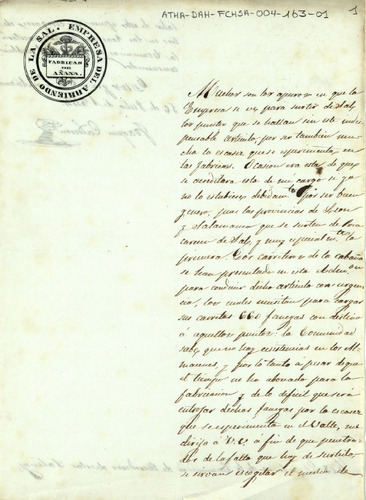 ATHA-DAH-FCHSA-004-163-01
1
EMPRESA DEL ARRIENDO DE LA SAL.
FABRICAS
DE
AÑANA.
Muchos son los apuros en que la
Empresa se vé para surtir de Sal,
los puntos que se hallan sin este indis-
pensable articulo, por ser tambien mu-
cha la escasez que se esperimenta en
las fabricas. Ocasion era esta de que
se acreditara esta de mi cargo si ya
no lo estubiese debidamte por ser buen
genero, pues las provincias de Leon
y Salamanca que se surten de
carecen de Sal, y muy especialmte la
primera. Dos carreteros de la cabaña
se han presentado en esta Admon
para conducir dicho articulo con urgen-
cia, los cuales necesitan para cargar
sus carretas 660 fanegas con destino
á aquellos puntos. La Comunidad
sabe que no hay existencias en los Al-
macenes, y por lo tanto á pesar de que
el tiempo no ha abonado para la
fabricacion y de lo dificil que será
entrojar dichas fanegas por la escasez
que se esperimenta en el Valle, me
dirijo á V.V. á fin de que penetra-
dos de la falta que hay de surtido,
se sirvan escogitar el medio de